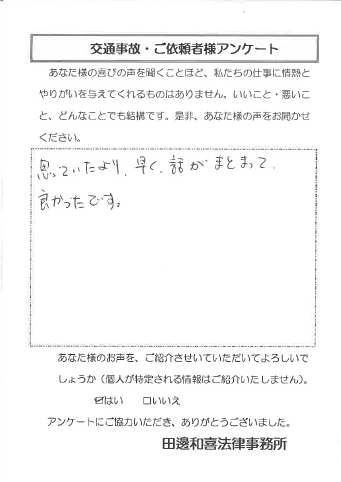 交通事故・ご依頼者様アンケート
あなた様の喜びの声を聞くことほど、私たちの仕事に情熱と
やりがいを与えてくれるものはありません。いいこと・悪いこ
と、どんなことでも結構です。是非、あなた様の声をお聞かせ
ください。
思っていたより、早く、話がまとまって、
良かったです。
あなた様のお声を、ご紹介させていただいてよろしいで
しょうか（個人が特定される情報はご紹介いたしません）。
☑はい　□いいえ
アンケートにご協力いただき、ありがとうございました。
田邊和喜法律事務所